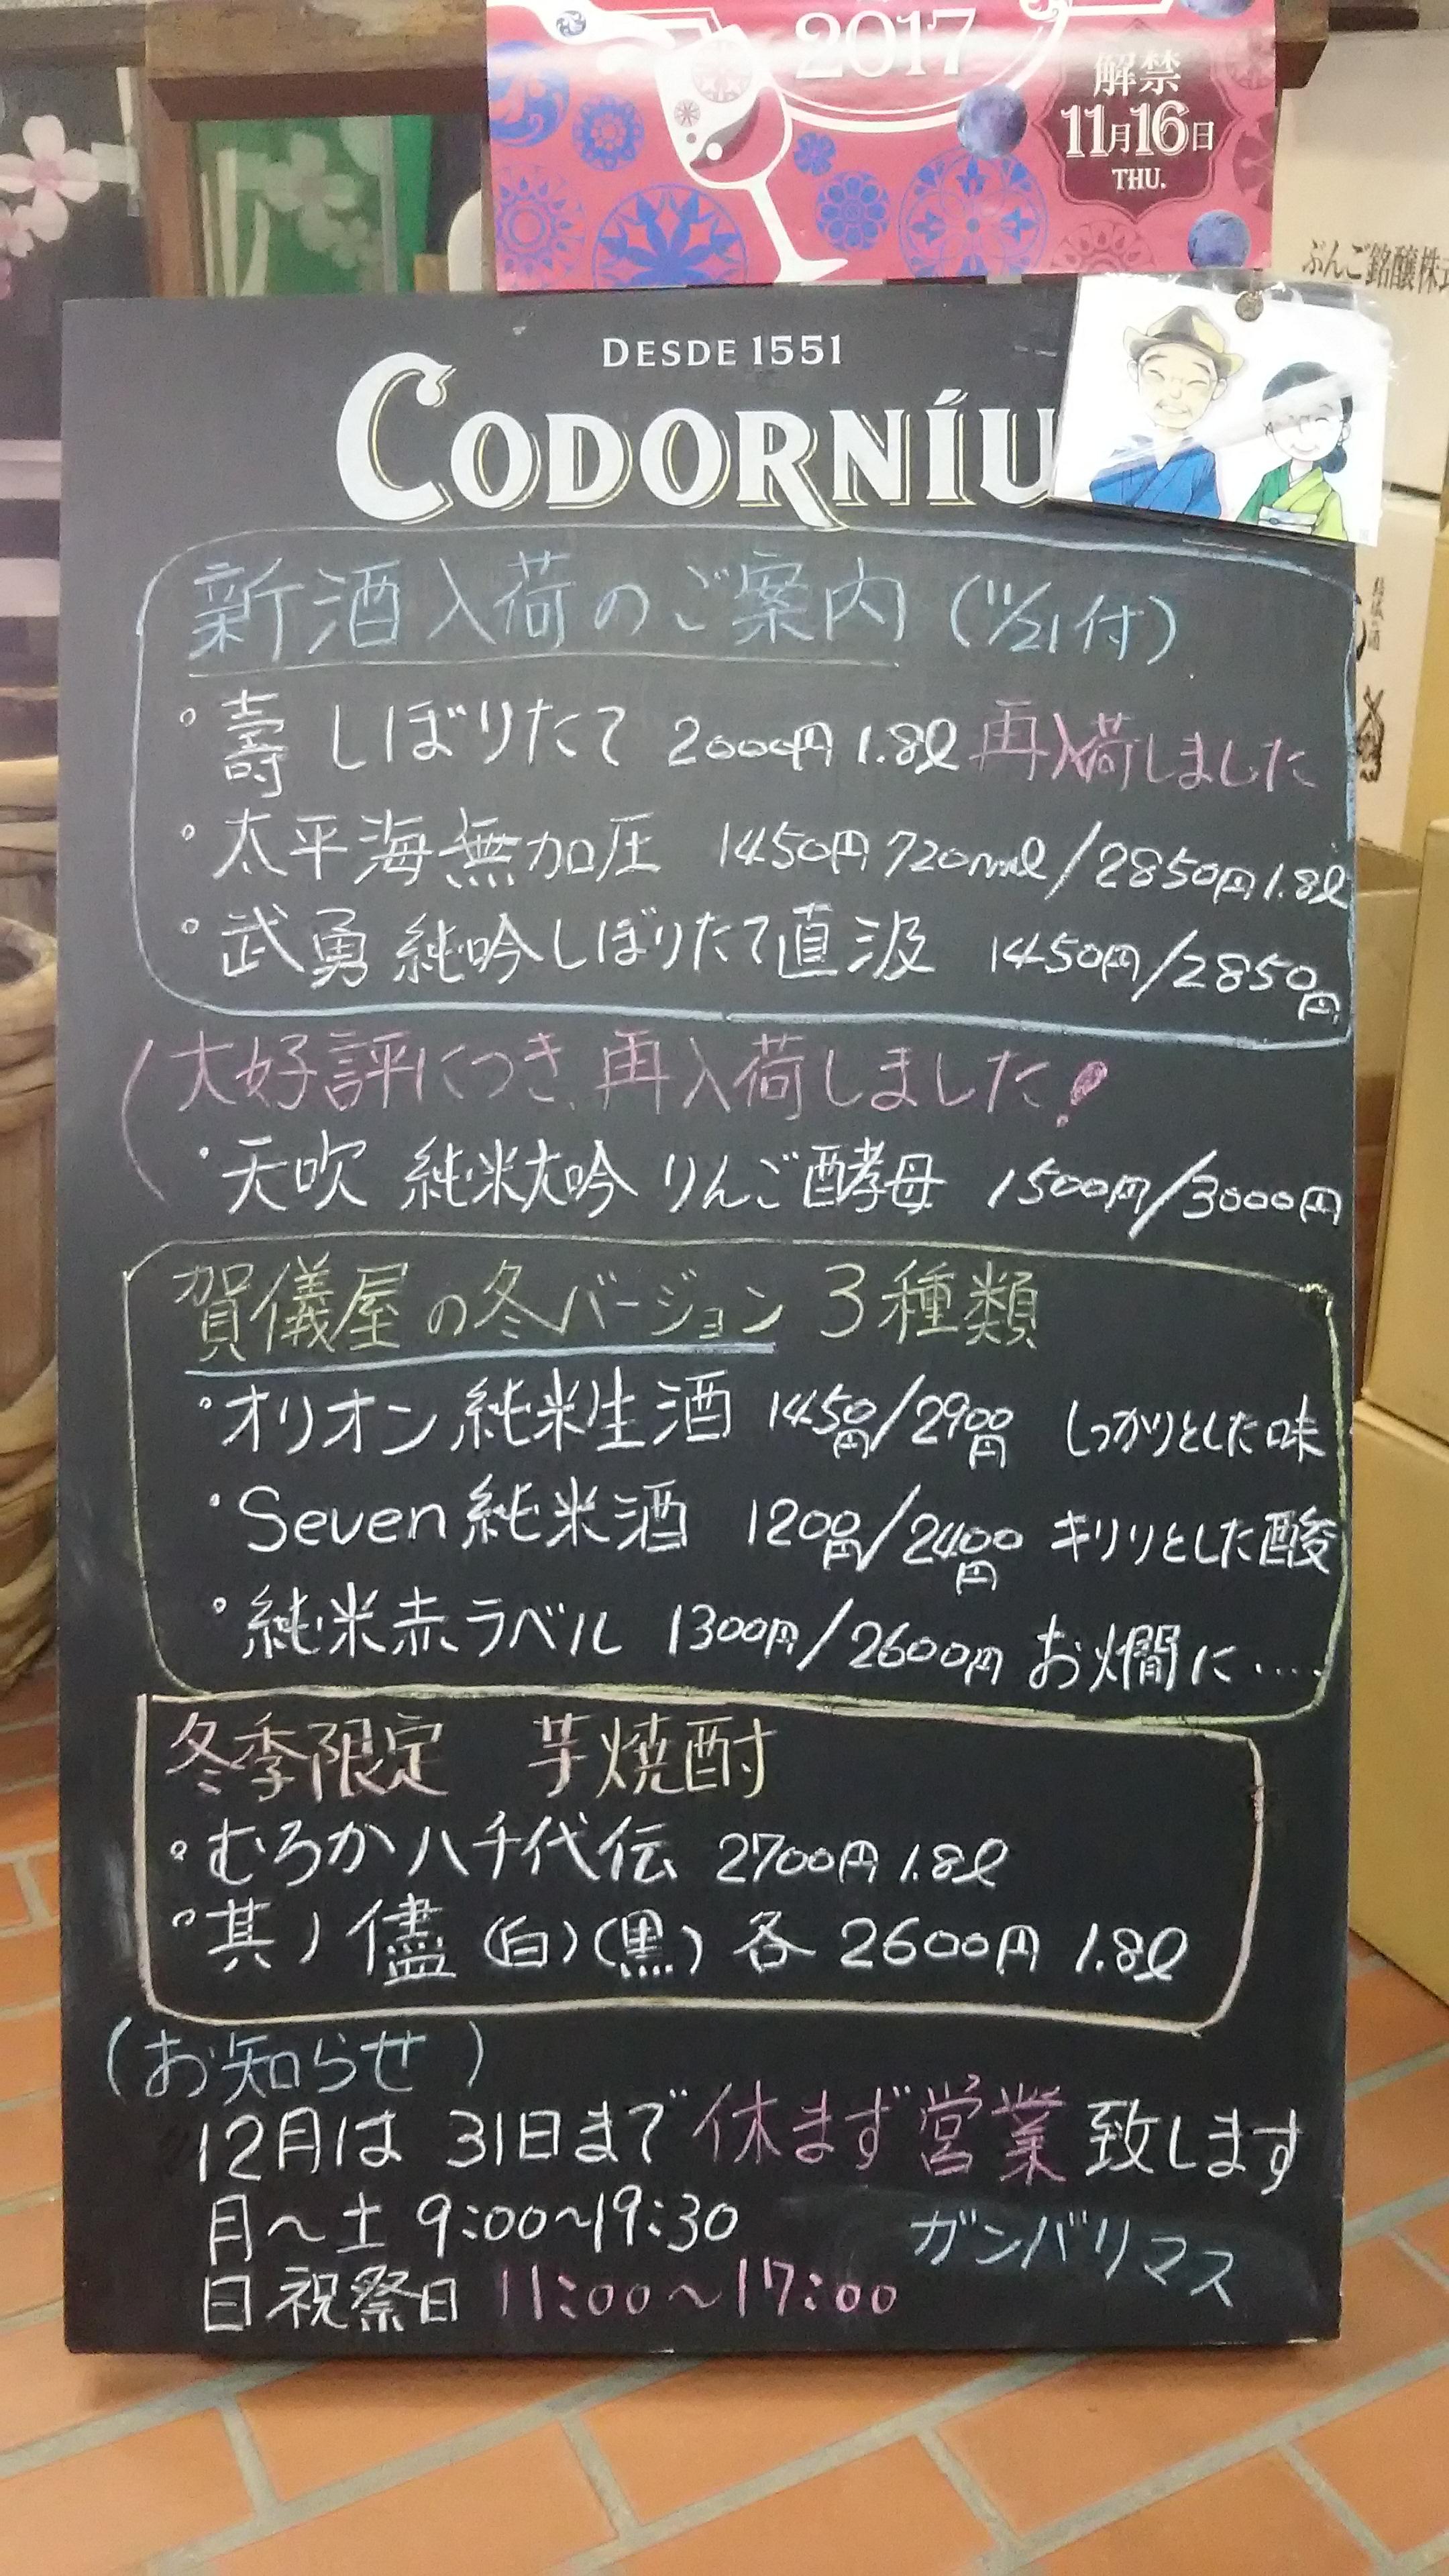 2017
解禁
11月16日
THU.
ぶんご銘醸株式
DESDE 1551
CODORNÍU
新酒入荷のご案内 (11/21付)
・壽 しぼりたて 2000円 1.8ℓ 再入荷しました
・太平海無加圧 1450円720mℓ/2850円1.8ℓ
・武勇 純吟しぼりたて直汲 1450円/2850円
(大好評につき、再入荷しました!
・天吹 純米大吟 りんご酵母 1500円/3000円
賀儀屋の冬バージョン 3種類
・オリオン純米生酒 1450円/2900円 しっかりとした味
・Seven純米酒 1200円/2400円 キリリとした酸
・純米赤ラベル 1300円/2600円 お燗に‥‥
冬季限定 芋焼酎
・むろか八千代伝 2700円 1.8ℓ
・其ノ儘 (白)(黒) 各 2600円 1.8ℓ
(お知らせ)
12月は 31日まで 休まず営業 致します
月〜土 9:00〜19:30 ガンバリマス
日祝祭日 11:00〜17:00